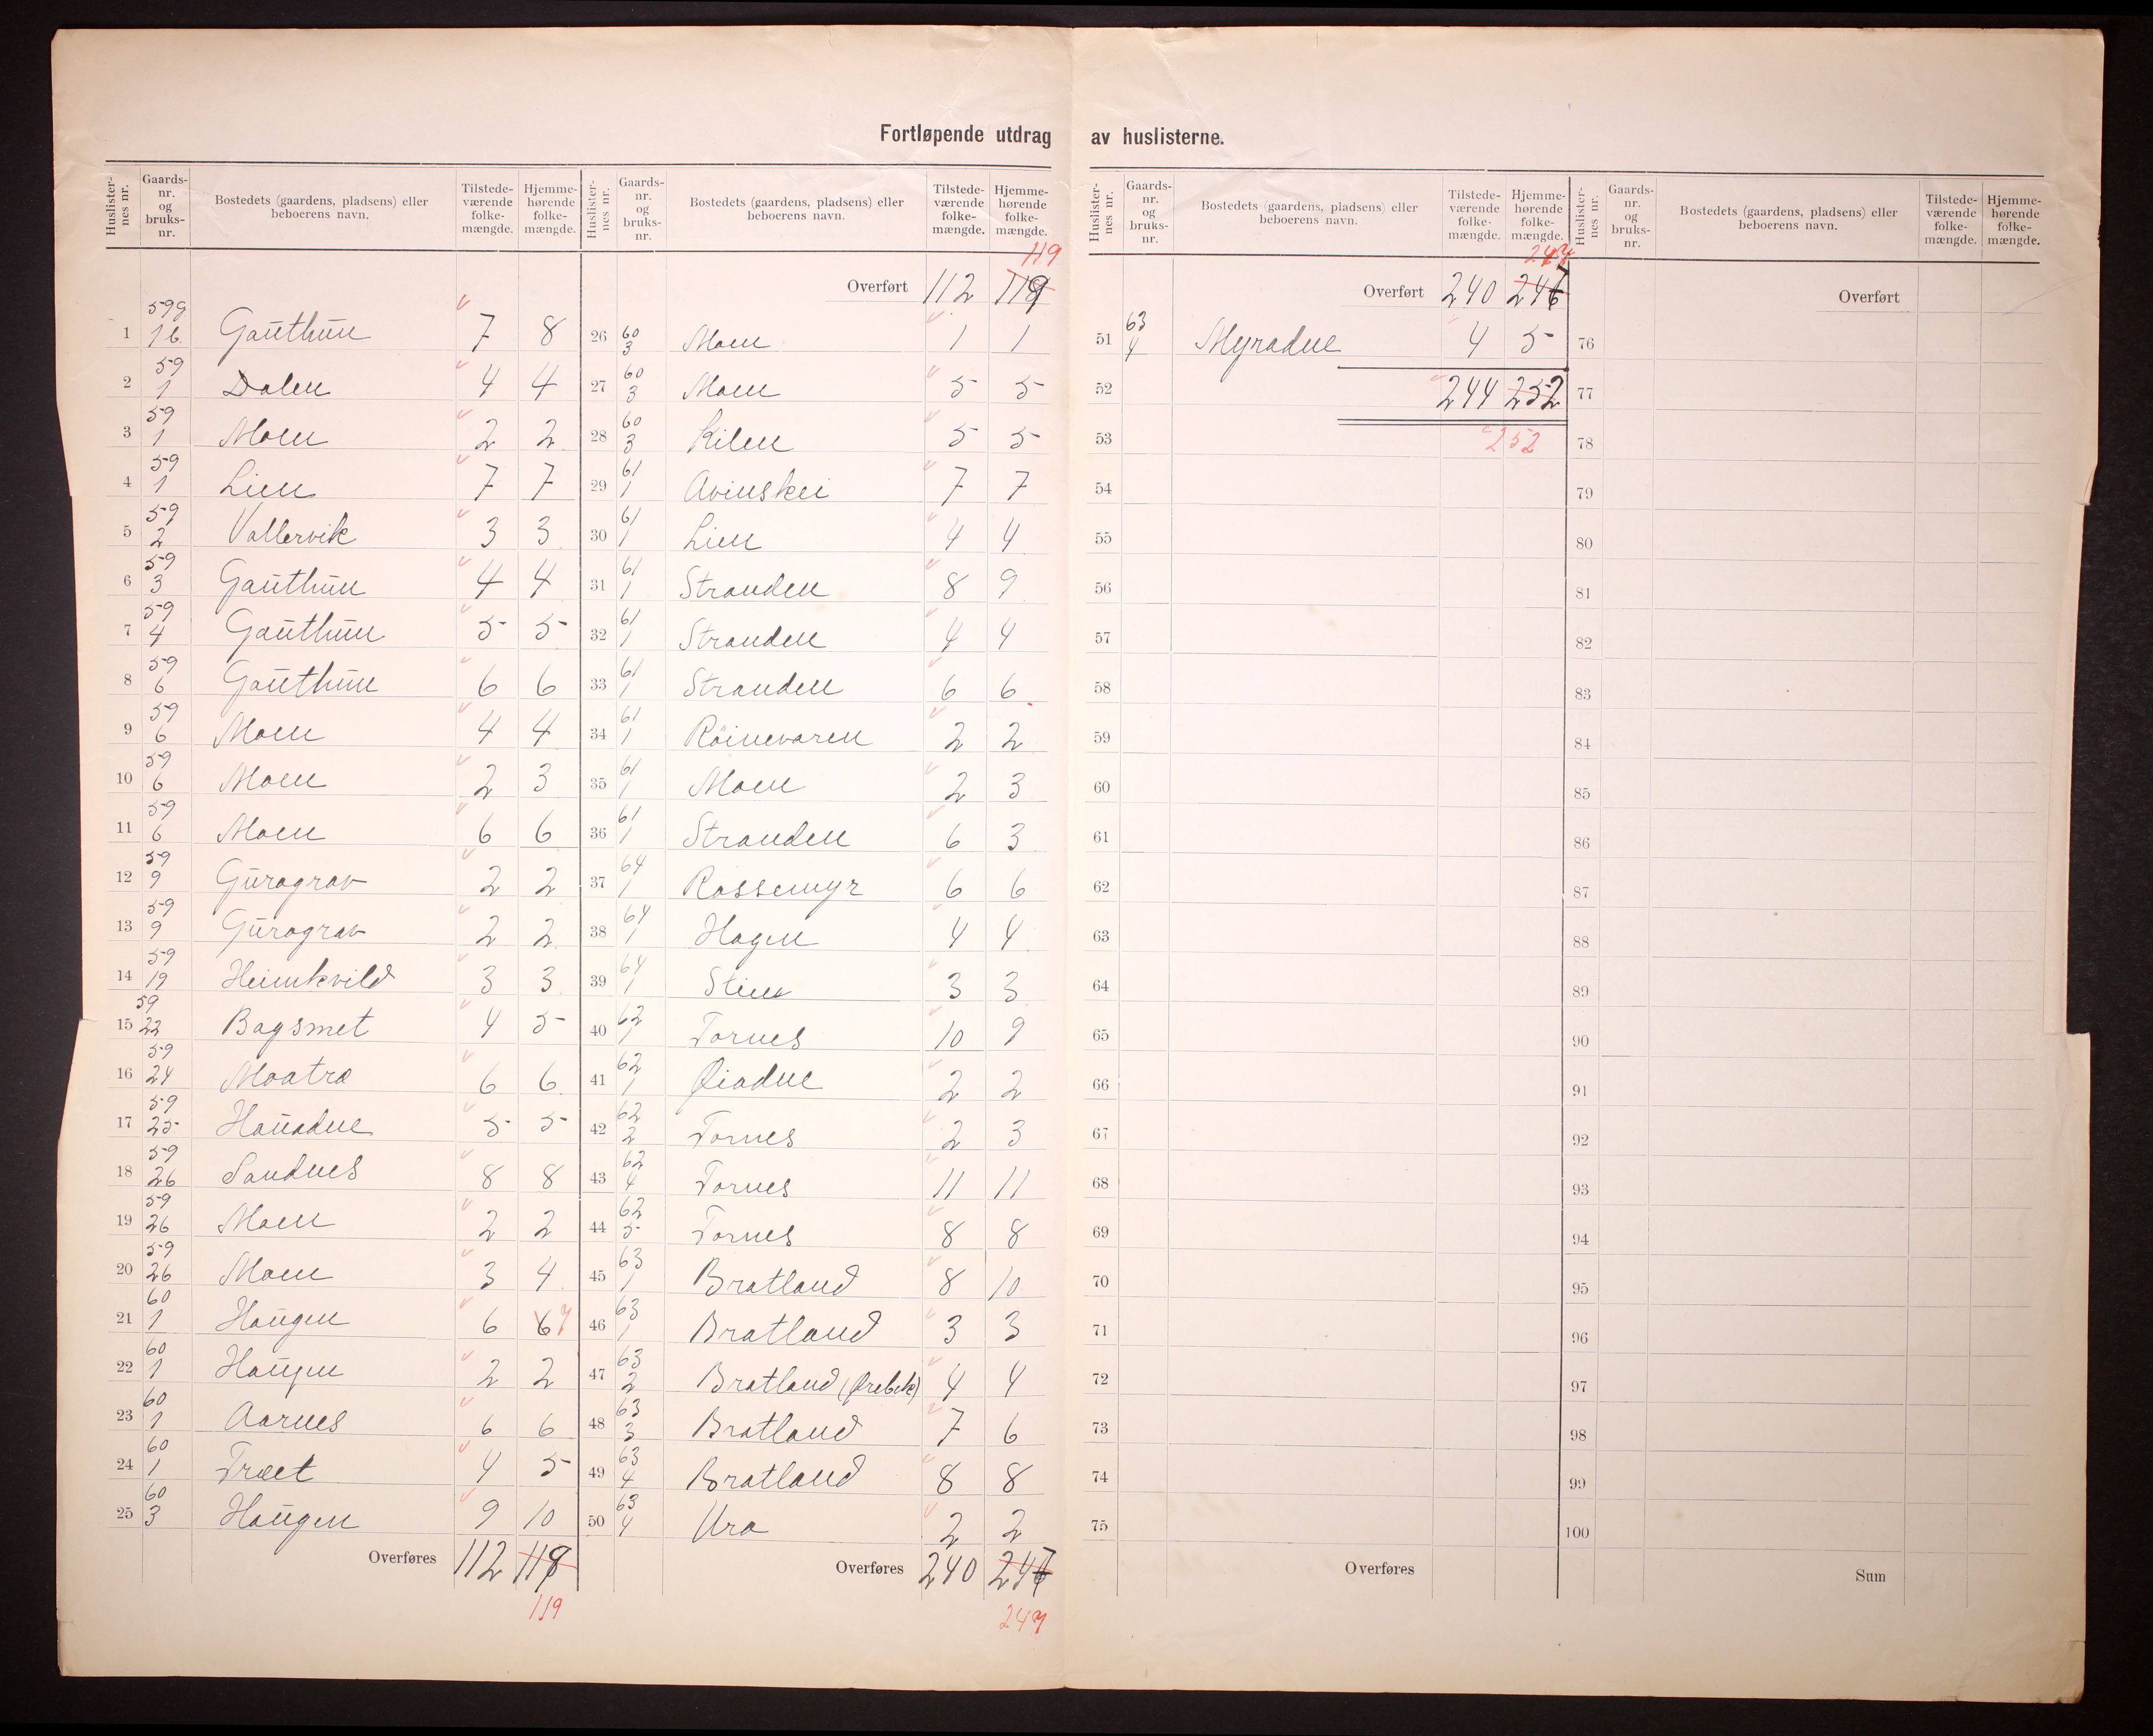 Fortløpende utdrag av huslisterne.
Huslisternes nr. Gaards-nr. og bruks-nr. Bostedets (gaardens, pladsens) eller beboerens navn. Tilstede-værende folke-mængde. Hjemme-hørende folke-mængde.
1 59 16 Gauthun 7 8
2 59 1 Dalen 4 4
3 59 1 Moen 2 2
4 59 1 Lien 7 7
5 59 2 Vallervik 3 3
6 59 3 Gauthun 4 4
7 59 4 Gauthun 5 5
8 59 6 Gauthun 6 6
9 59 6 Moen 4 4
10 59 6 Moen 2 3
11 59 6 Moen 6 6
12 59 9 Guragrav 2 2
13 59 9 Guragrav 2 2
14 59 19 Heimkvild 3 3
15 59 22 Bagsmet 4 5
16 59 24 Moatræ 6 6
17 59 25 Hauadne 5 5
18 59 26 Sandnes 8 8
19 59 26 Moen 2 2
20 59 26 Moen 3 4
21 60 1 Haugen 6 6 7
22 60 1 Haugen 2 2
23 60 1 Aarnes 6 6
24 60 1 Træet 4 5
25 60 3 Haugen 9 10
Overføres 112 118
119
Huslisternes nr. Gaards-nr. og bruks-nr. Bostedets (gaardens, pladsens) eller beboerens navn. Tilstede-værende folke-mængde. Hjemme-hørende folke-mængde.
119
Overført 112 118
26 60 3 Moen 1 1
27 60 3 Moen 5 5
28 60 3 Kilen 5 5
29 61 1 Avinskei 7 7
30 61 1 Lien 4 4
31 61 1 Stranden 8 9
32 61 1 Stranden 4 4
33 61 1 Stranden 6 6
34 61 1 Röinevaren 2 2
35 61 1 Moen 2 3
36 61 1 Stranden 6 3
37 64 1 Rossemyr 6 6
38 64 1 Hagen 4 4
39 64 1 Stien 3 3
40 62 1 Tornes 10 9
41 62 1 Øiadne 2 2
42 62 2 Tornes 2 3
43 62 4 Tornes 11 11
44 62 5 Tornes 8 8
45 63 1 Bratland 8 10
46 63 1 Bratland 3 3
47 63 2 Bratland (Ørebek) 4 4
48 63 3 Bratland 7 6
49 63 4 Bratland 8 8
50 63 4 Ura 2 2
Overføres 240 246
247
Huslisternes nr. Gaards-nr. og bruks-nr. Bostedets (gaardens, pladsens) eller beboerens navn. Tilstede-værende folke-mængde. Hjemme-hørende folke-mængde.
247
Overført 240 246
51 63 4 Myradne 4 5
52 244 252
53 252
54
55
56
57
58
59
60
61
62
63
64
65
66
67
68
69
70
71
72
73
74
75
Overføres
Huslisternes nr. Gaards-nr. og bruks-nr. Bostedets (gaardens, pladsens) eller beboerens navn. Tilstede-værende folke-mængde. Hjemme-hørende folke-mængde.
Overført
76
77
78
79
80
81
82
83
84
85
86
87
88
89
90
91
92
93
94
95
96
97
98
99
100
Sum